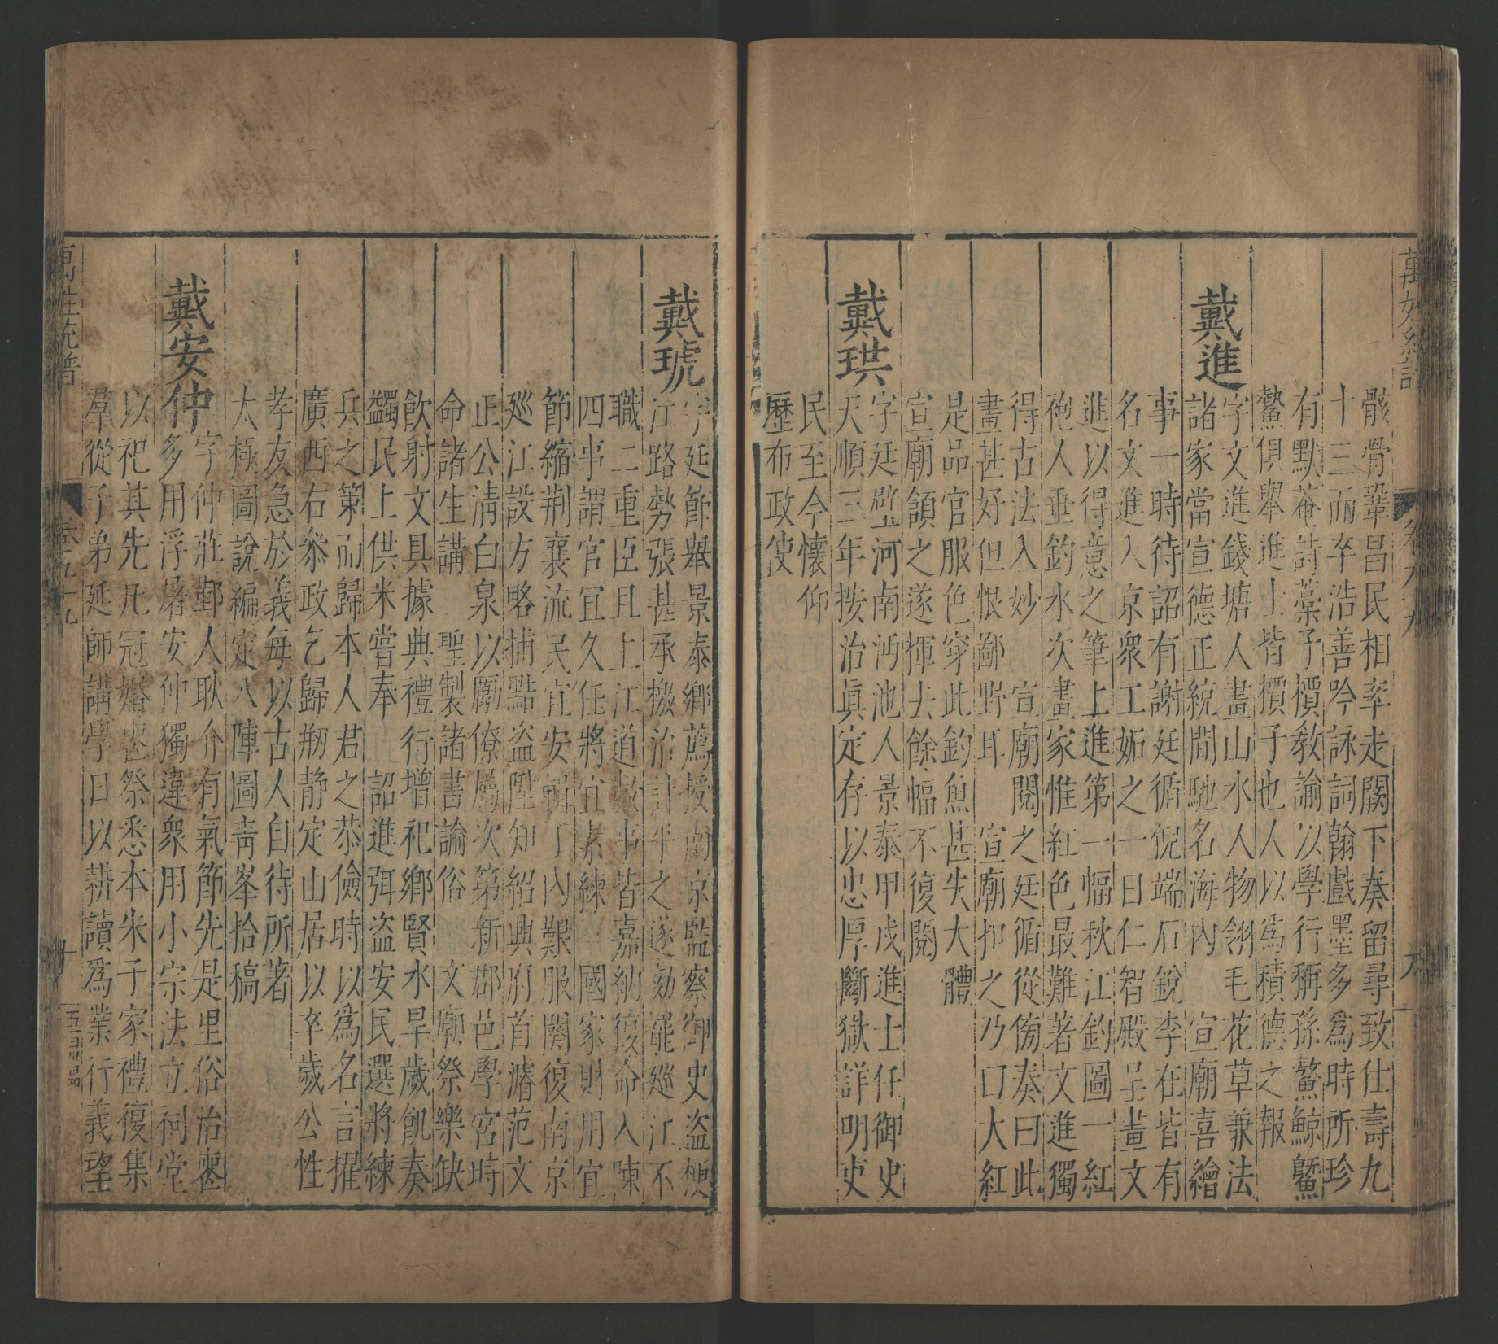 骸骨鞏昌民相率走闕下奏留尋致仕壽九
十三而卒浩善吟詠詞翰戲墨多爲時所珍
有默菴詩藁子價敎諭以學行稱孫鰲鯨鼇
鰲俱舉進士皆價子也人以爲積德之報
戴進
字文進錢塘人畫山水人物翎毛花草兼法
諸家當宣德正統間馳名海內　宣廟喜繪
事一時待詔有謝廷循倪端石銳李在皆有
名文進入京衆工妬之一日仁智殿呈畫文
進以得意之筆上進第一幅秋江釣圖一紅
袍人垂釣水次畫家惟紅色最難著文進獨
得古法入妙　宣廟閱之廷循從傍奏曰此
畫甚好但恨鄙野耳　宣廟抑之乃口大紅
是品官服色穿此釣魚甚失大體
宣廟頷之遂揮去餘幅不復閱
戴珙
字廷璧河南沔池人景泰甲戌進士任御史
天順三年按治眞定存以忠厚斷獄詳明吏
民至今懷仰
歷布政使
戴琥
字廷節舉景泰鄉薦授南京監察御史盜梗
江路勢張甚承檄治討平之遂劾罷巡江不
職二重臣且上江道故事皆嘉納復命入陳
四事謂官宜久任將宜素練　國家財用宜
節縮荆襄流民宜安輯丁內艱服闋復南京
巡江設方略捕點盜陞知紹興府首濬范文
正公淸白泉以勵僚屬次第新郡邑學宮時
命諸生講　聖製諸書諭俗　文廟祭樂缺
飲射文具據典禮行增祀鄉賢水旱歲飢奏
蠲民上供米嘗奉　詔進弭盜安民選將練
兵之第而歸本人君之恭儉時以爲名言擢
廣西右叅政乞歸剏靜定山居以卒歲公性
孝友急於義每以古人自待所著
太極圖說編定八陣圖靑峯拾稿
戴安仲
字仲莊鄞人耿介有氣節先是里俗治喪
多用浮屠安仲獨違衆用小宗法立祠堂
以祀其先凡冠婚喪祭悉本朱子家禮復集
羣從子弟延師講學日以耕讀爲業行義望
萬姓統譜
卷五十九